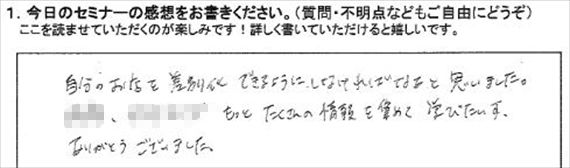 1. 今日のセミナーの感想をお書きください。（質問・不明点などもご自由にどうぞ）
ここを読ませていただくのが楽しみです！詳しく書いていただけると嬉しいです。
自分のお店を差別化できるようにしなければなあと思いました。
、 もっとたくさんの情報を集めて学びたいです。
ありがとうございました。